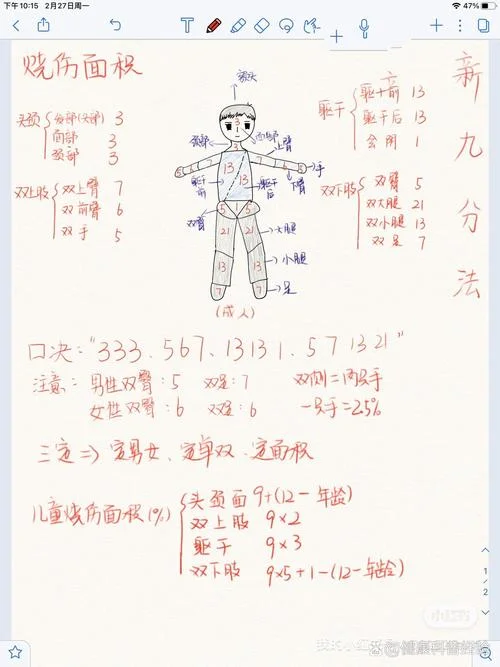 下午 10:15 2月27日周一
47%
烧伤面积
新九分法
头颈 发部(头部) 3
面部 3
颈部 3
双上肢 双上臂 7
双前臂 6
双手 5
发头
颈部
面部
上臂
手
下臂
躯干前
躯干后
双臀
大腿
小腿
足
3
3
5 6 7 13 13 7 6 5
5 5
21 21
13 13
7 7
(成人)
躯干 躯干前 13
躯干后 13
会阴 1
双下肢 双臀 5
双大腿 21
双小腿 13
双足 7
口决："333.567.13131.571321"
注意：男性双臀：5 双足：7 双侧=两只手
女性双臀：6 双足：6 一只手=2.5%
三定=>定男女、定单双、定面积
儿童烧伤面积(%) 头颈面 9+(12-年龄)
双上肢 9×2
躯干 9×3
双下肢 9×5+1-(12-年龄)
1/2
小红书